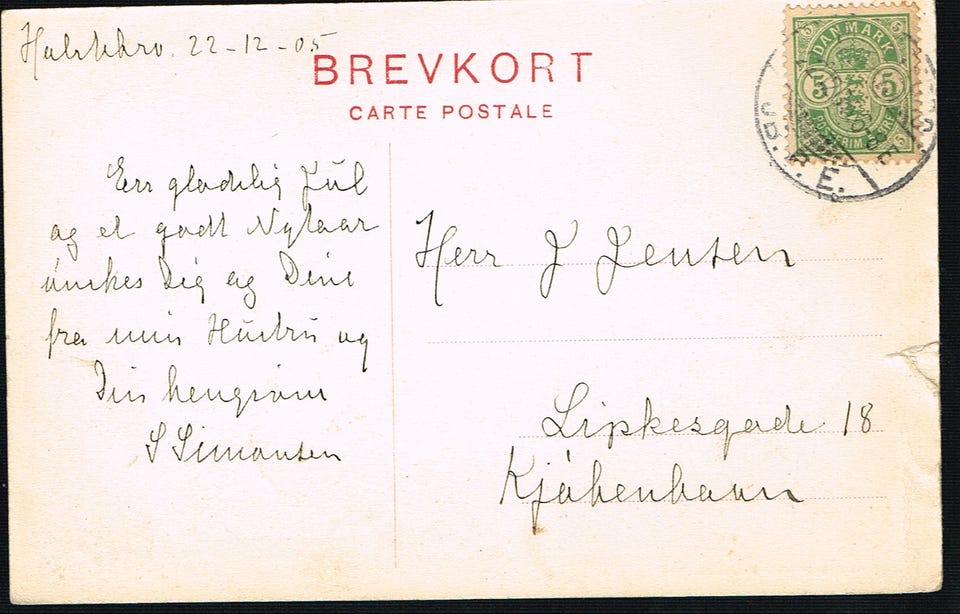 Holstebro. 22-12-05
BREVKORT
CARTE POSTALE
DANMARK
5 5
E.
Een glædelig Jul
og et godt Nytaar
ønskes Dig og Dine
fra min Hustru og
Din hengivne
S Simonsen
Herr J Jensen
Lipkesgade 18
Kjøbenhavn